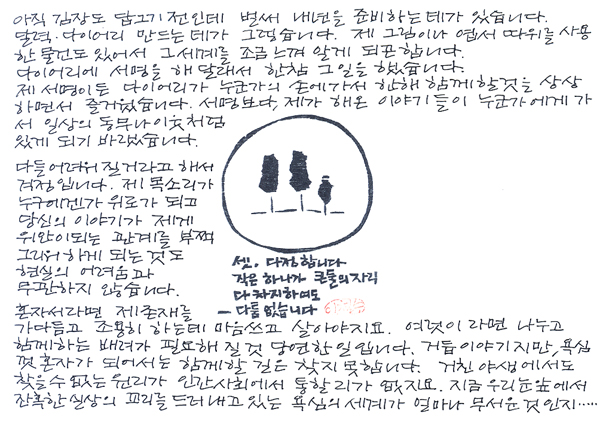 아직 김장도 담그기 전인데 벌써 내년을 준비하는 데가 있습니다.
달력·다이어리 만드는 데가 그렇습니다. 제 그림이나 엽서 따위를 사용
한 물건도 있어서 그 세계를 조금 느껴 알게 되곤 합니다.
다이어리에 서명을 해 달래서 한참 그 일을 했습니다.
제 서명이 든 다이어리가 누군가의 손에 가서 한해 함께 할 것을 상상
하면서 즐거웠습니다. 서명보다, 제가 해온 이야기들이 누군가에게 가
서 일상의 동무나 이웃처럼
있게 되기 바랐습니다.
다들 어려워 질거라고 해서
걱정입니다. 제 목소리가
누구에겐가 위로가 되고
당신의 이야기가 제게
위안이 되는 관계를 부쩍
그리워하게 되는 것도
현실의 어려움과
무관하지 않습니다.
혼자서라면 제 존재를
가다듬고 조용히 하는데 마음쓰고 살아야지요. 여럿이라면 나누고
함께하는 배려가 필요해 질 것 당연한 일입니다. 거듭 이야기지만, 욕심
껏 혼자가 되어서는 함께할 길은 찾지 못합니다. 거친 야생에서도
찾을 수 없는 원리가 인간사회에서 통할 리가 없지요. 지금 우리 눈앞에서
잔혹한 실상의 꼬리를 드러내고 있는 욕심의 세계가 얼마나 무서운 것인지……
셋, 다정합니다
작은 하나가 큰 둘의 자리
다 차지하여도
다툼 없습니다